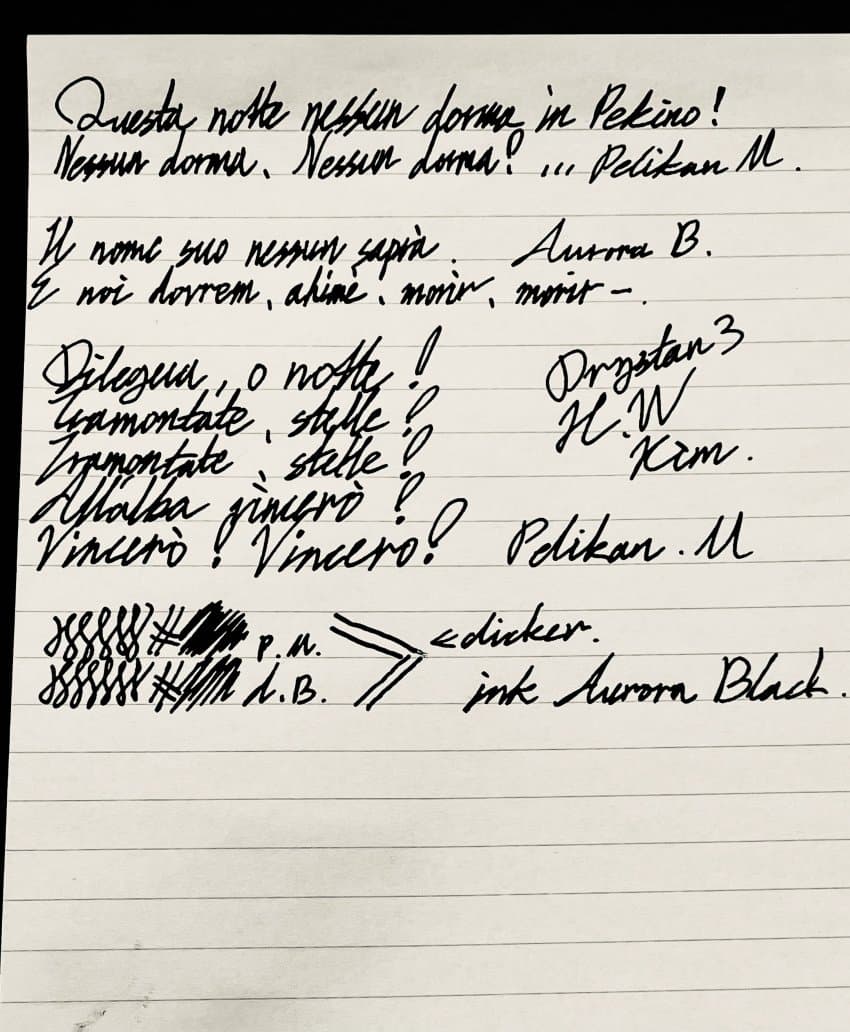 Questa notte nessun dorma in Pekino!
Nessun dorma, Nessun dorma! ... Pelikan M.
Il nome suo nessun saprà. Aurora B.
E noi dovrem, ahimè, morir, morir -.
Dilegua, o notte!
Tramontate, stelle!
Tramontate, stelle!
All'alba vincerò!
Vincerò! Vincero!
3
H.W
Kim.
Pelikan. M
P.M.
A.B.
<dicker.
ink Aurora Black.